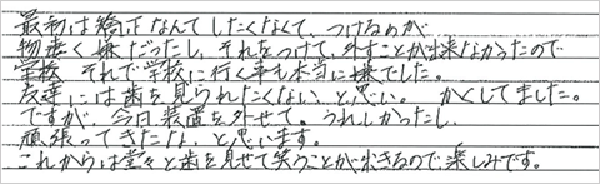 最初は矯正なんてしたくなくて、つけるのが
物凄く嫌だったし、それをつけて、外すことが出来なかったので
学校 それで学校に行く事も本当に嫌でした。
友達には歯を見られたくない、と思い。 かくしてました。
ですが、今日装置を外せて、うれしかったし、
頑張ってきたな、と思います。
これからは堂々と歯を見せて笑うことが出来るので楽しみです。